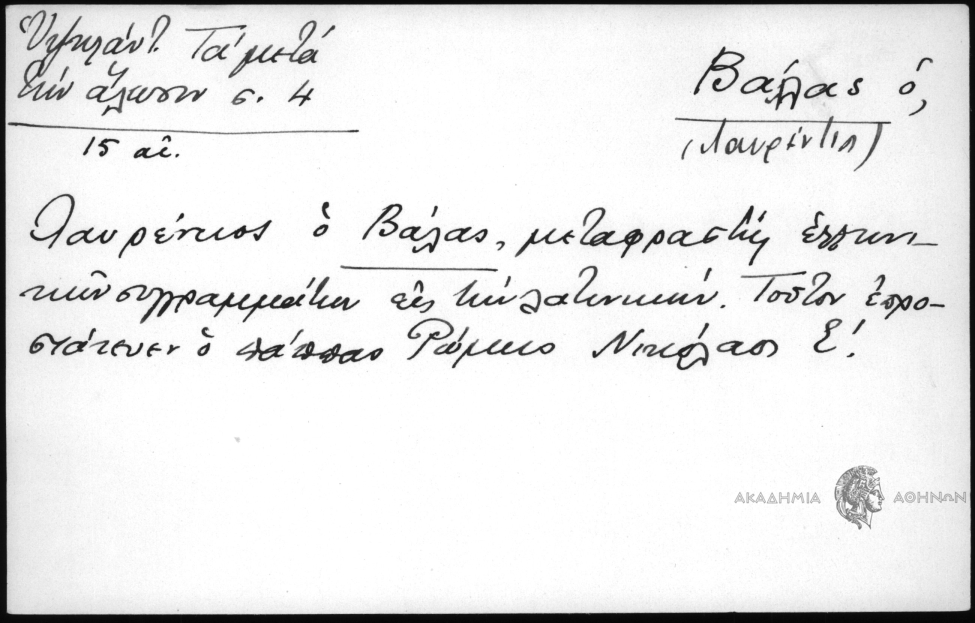 Ὑψηλάντ. Τά μετά
τήν ἅλωσιν σ. 4
15 αἰ.
Βάλλας ὁ,
(Λαυρέντιος)
Λαυρέντιος ὁ Βάλας, μεταφραστής ἑλληνι-
κῶν συγγραμμάτων εἰς τήν λατινικήν. Τοῦτον ἐπρο-
στάτευεν ὁ πάππας Ρώμης Νικόλαος Ε΄.
ΑΚΑΔΗΜΙΑ ΑΘΗΝΩΝ